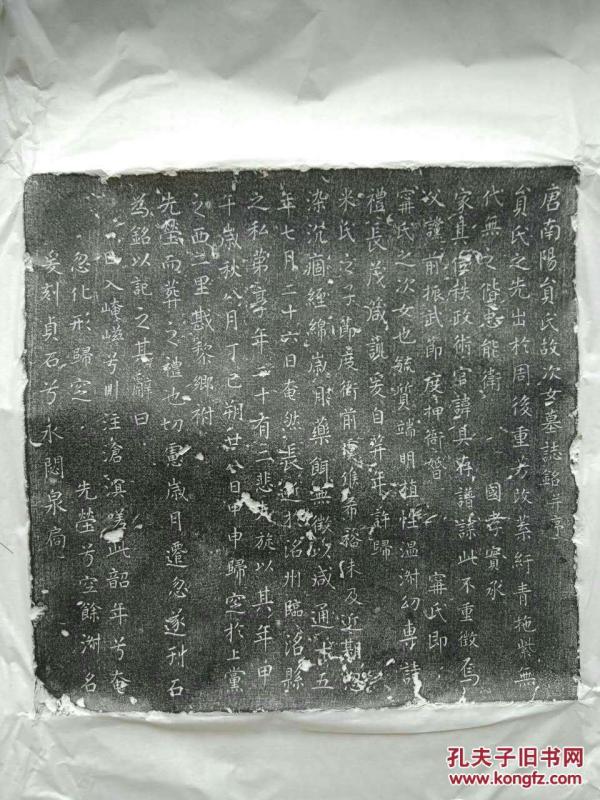 唐南陽貟氏故次女墓誌銘并序
貟氏之先出於周後重方改業紆青拖紫無
代無之偕忠能衛國孝實承
家其 秩政術官諱具在譜諜此不重徵焉
父謹前振武節度押衙婚甯氏即
甯氏之次女也毓質端明植性溫淑幼專詩
禮長茂箴誡爰自笄年許歸
米氏之子節度衙前 維希裕未及近期
染沉痼纏綿歲月藥餌無徵以咸通十五
年七月二十六日奄然長逝於洺州臨洺縣
之私弟享年二十有二悲 旋以其年甲
午歲秋八月丁巳朔廿八日甲申歸窆於上黨
之西二里戡黎鄉祔
先塋而葬之禮也切慮歲月遷忽遂刊石
為銘以記之其辭曰
日入崦嵫兮川注滄溟嗟此韶年兮奄
忽化形歸窆 先塋兮空餘淑名
爰刻貞石兮永閟泉扃
孔夫子旧书网
www.kongfz.com